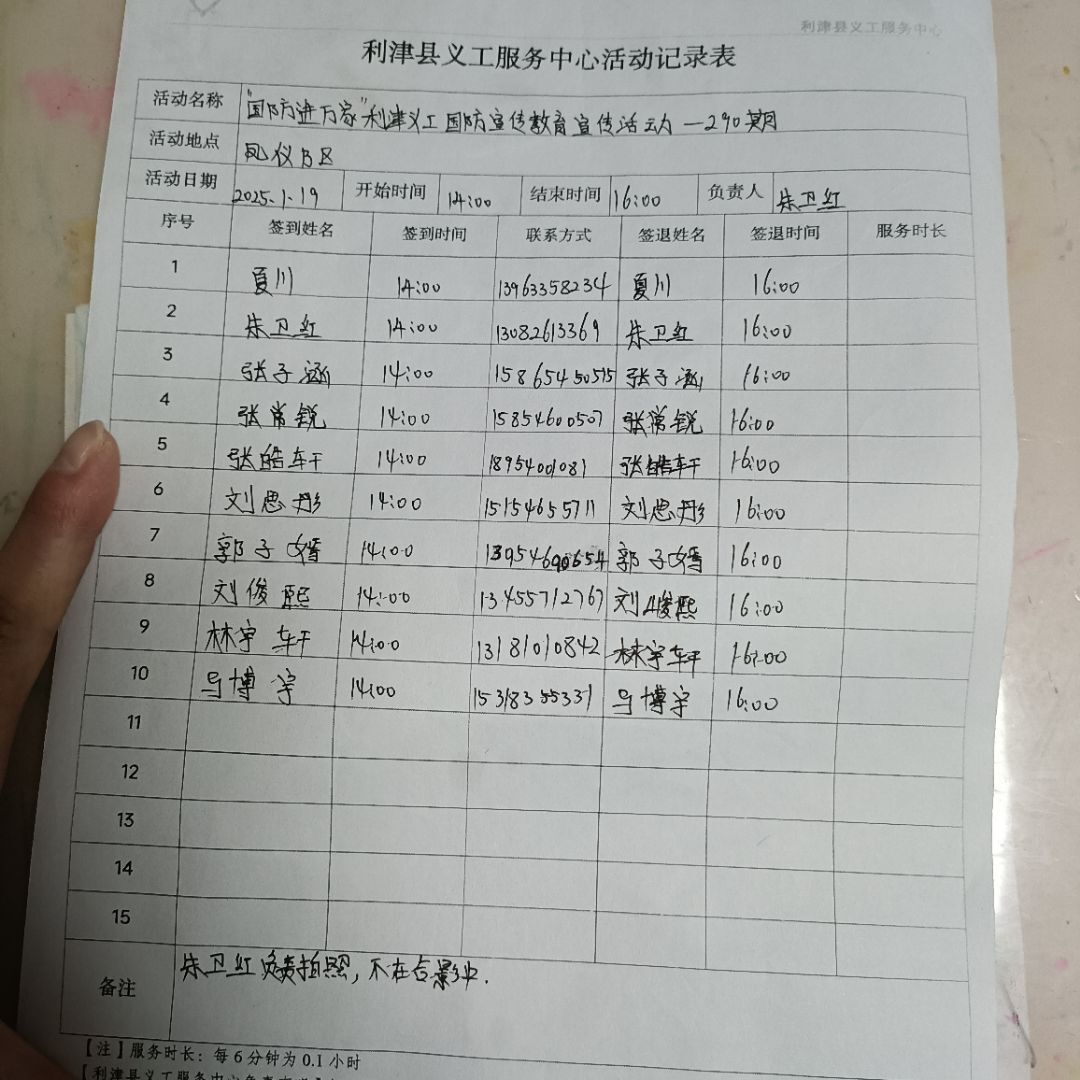 利津县义工服务中心
利津县义工服务中心活动记录表
活动名称 "国防进万家"利津义工国防宣传教育宣传活动—290期
活动地点 凤仪B区
活动日期 2025.1.19 开始时间 14:00 结束时间 16:00 负责人 朱卫红
序号 签到姓名 签到时间 联系方式 签退姓名 签退时间 服务时长
1 夏川 14:00 13963358234 夏川 16:00
2 朱卫红 14:00 13082613369 朱卫红 16:00
3 张子涵 14:00 15865450515 张子涵 16:00
4 张常锐 14:00 15854600507 张常锐 16:00
5 张皓轩 14:00 18954001081 张皓轩 16:00
6 刘思彤 14:00 15154655711 刘思彤 16:00
7 郭子嫣 14:00 郭子嫣 16:00
8 刘俊熙 14:00 13455712767 刘峻熙 16:00
9 林宇轩 14:00 13181010842 林宇轩 16:00
10 马博宇 14:00 15318355331 马博宇 16:00
11
12
13
14
15
备注 朱卫红负责拍照,不在合影中.
【注】服务时长:每6分钟为0.1小时